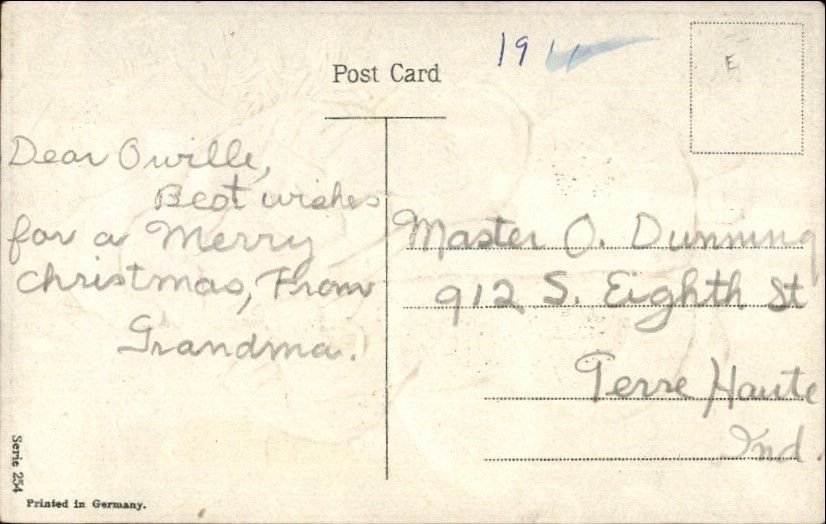 Post Card
191
E
Dear Orville,
Best wishes
for a Merry
Christmas, From
Grandma.
Master O. Dunning
912 S. Eighth St
Terre Haute
Ind.
Serie 254
Printed in Germany.